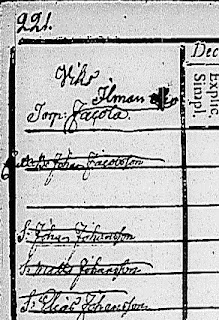 221.
Dec
Explic
Simpl.
Wiks
Ilman
Torp: Jacola.
Johan Jacobson
S: Johan Johansson
S: Matts Johansson
S: Elias Johansson